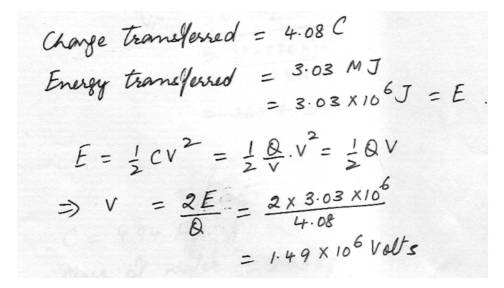 Charge transferred = 4.08 C
Energy transferred = 3.03 MJ
= 3.03 X 10⁶ J = E .
E = 1/2 CV² = 1/2 Q/V . V² = 1/2 QV
⇒ V = 2E/Q = 2 x 3.03 X10⁶/4.08
= 1.49 X 10⁶ Volts